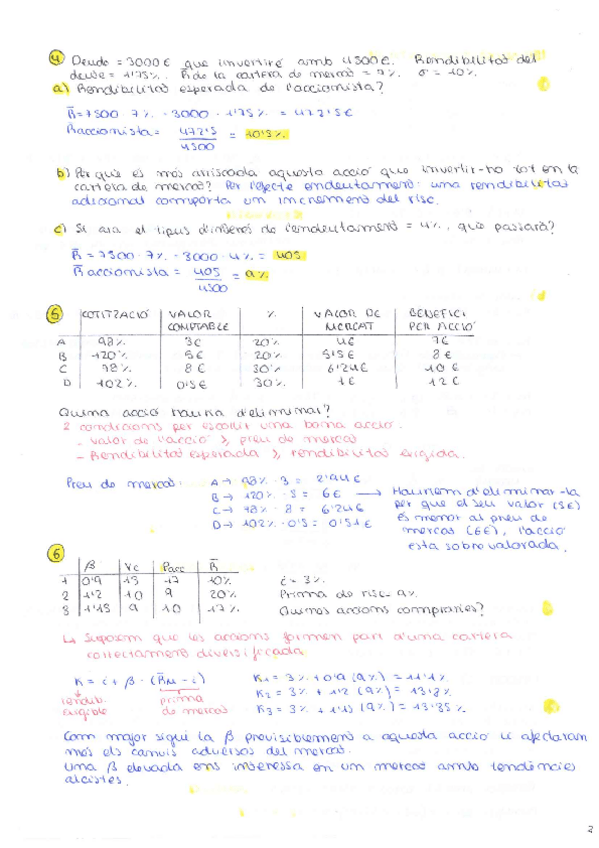 4 Deute = 3000€ que invertiré amb 4500€. Rendibilitat del
deute = 1'75%. R de la cartera de mercat = 7%. σ = 10%.
a) Rendibilitat esperada de l'accionista?
R = 7500 · 7% - 3000 · 1'75% = 472'5€
R accionista = 472'5 / 4500 = 10'5%.
b) Per què és més arriscada aquesta acció que invertir-ho tot en la
cartera de mercat? Per l'efecte endeutament: una rendibilitat
adicional comporta un increment del risc.
c) Si ara el tipus d'interès de l'endeutament = 4%, què passarà?
R = 7500 · 7% - 3000 · 4% = 405
R accionista = 405 / 4500 = 9%
5 COTITZACIÓ VALOR COMPTABLE % VALOR DE MERCAT BENEFICI PER ACCIÓ
A 98% 3€ 20% 4€ 7€
B 120% 5€ 20% 5'5€ 8€
C 78% 8€ 30% 6'24€ 10€
D 102% 0'5€ 30% 1€ 12€
Quina acció hauria d'eliminar?
2 condicions per escollir una bona acció.
- Valor de l'acció > preu de mercat
- Rendibilitat esperada > rendibilitat exigida.
Preu de mercat: A → 98% · 3 = 2'94€
B → 120% · 5 = 6€ → Hauríem d'eliminar-la
C → 78% · 8 = 6'24€ per que el seu valor (5€)
D → 102% · 0'5 = 0'51€ és menor al preu de
mercat (6€), l'acció
està sobrevalorada.
6 β Vc Pacc R
1 0'9 15 17 10% i = 3%.
2 1'2 10 9 20% Prima de risc = 9%
3 1'15 9 10 17% Quines accions compraries?
↳ Suposem que les accions formen part d'una cartera
correctament diversificada
K = i + β · (RM - i) K1 = 3% + 0'9 (9%) = 11'1%
rendib. exigible prima de mercat K2 = 3% + 1'2 (9%) = 13'8%
K3 = 3% + 1'15 (9%) = 13'35%
Com major sigui la β previsiblement a aquesta acció li afectaran
més els canvis adversos del mercat.
Una β elevada ens interessa en un mercat amb tendències
alcistes.
2